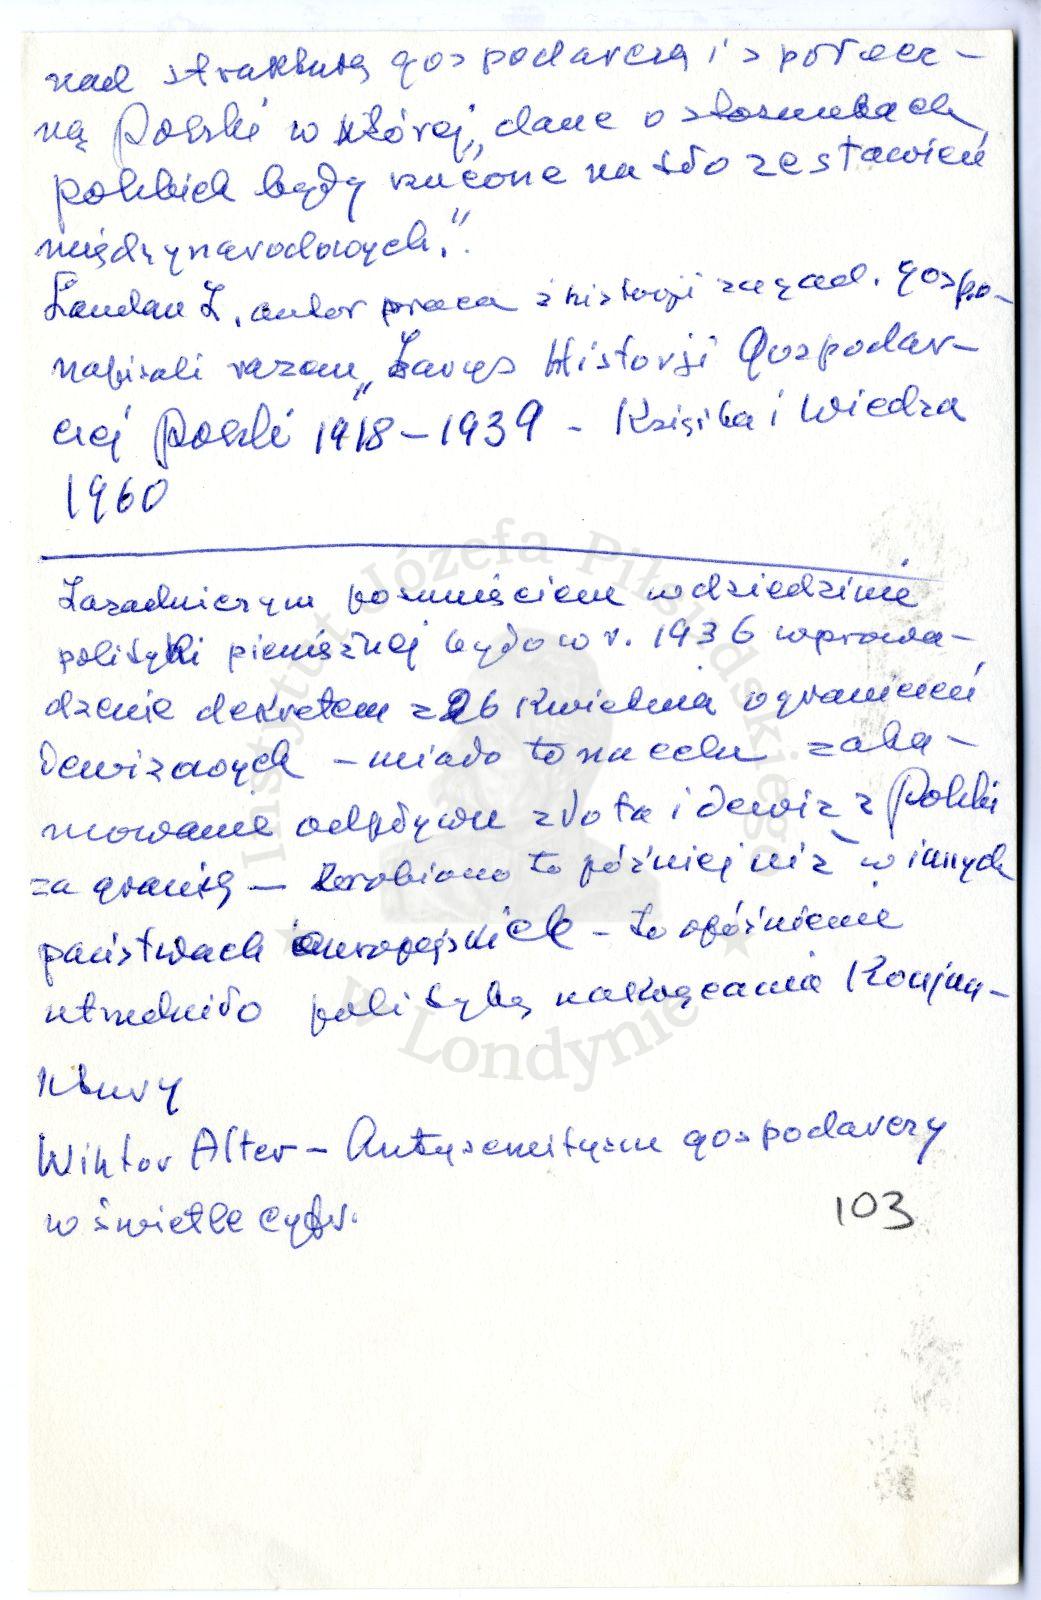 nad strukturą gospodarczą i społecz-
ną Polski w której „dane o stosunkach
polskich będą rzucone na tło zestawień
międzynarodowych."
Landau Z. autor praca z historji zagad. gospo-
napisali razem „Zarys Historji Gospodar-
czej Polski 1918-1939 - Książka i Wiedza
1960
Zasadniczym posunięciem w dziedzinie
polityki pieniężnej było w r. 1936 wprowa-
dzenie dekretem z 26 kwietnia ograniczeń
dewizowych - miało to na celu zaha-
mowanie odpływu złota i dewiz z Polski
za granicę - zrobiono to później niż w innych
państwach europejskich - to opóźnienie
utrudniło politykę nakręcania Konjun-
ktury
Wiktor Alter - Antysemityzm gospodarczy
w świetle cyfr.
103
Instytut Józefa Piłsudskiego
w Londynie